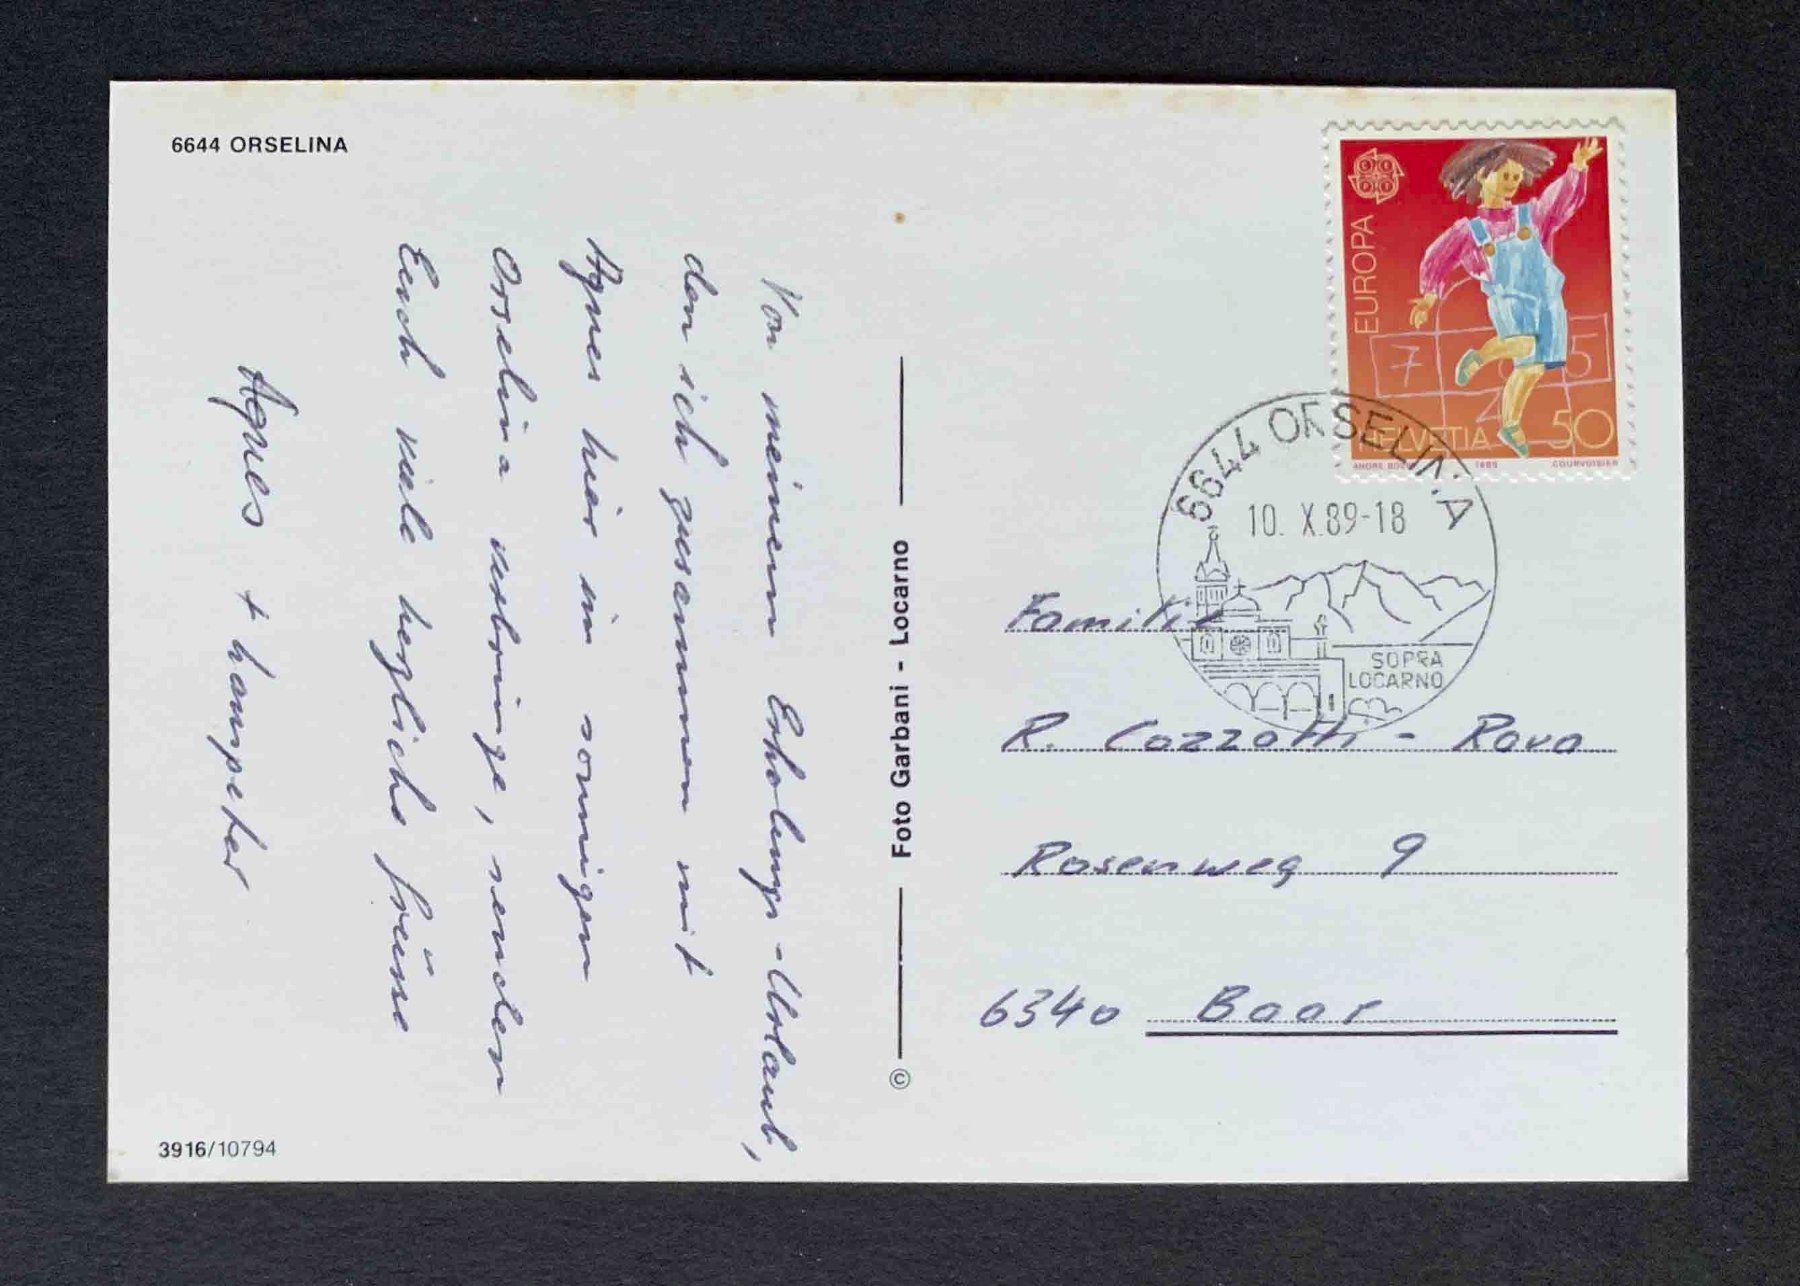 6644 ORSELINA
Von meinem Erholungs-Urlaub,
den ich zusammen mit
Agnes hier im sonnigen
Orselina verbringe, senden
Euch viele herzliche Grüsse
Agnes + Hanspeter
3916/10794
© Foto Garbani - Locarno
EUROPA
7 5
2
HELVETIA 50
1989 COURVOISIER
6644 ORSELINA
10. X.89-18
SOPRA
LOCARNO
Familie
R. Cozzatti - Rava
Rosenweg 9
6340 Baar